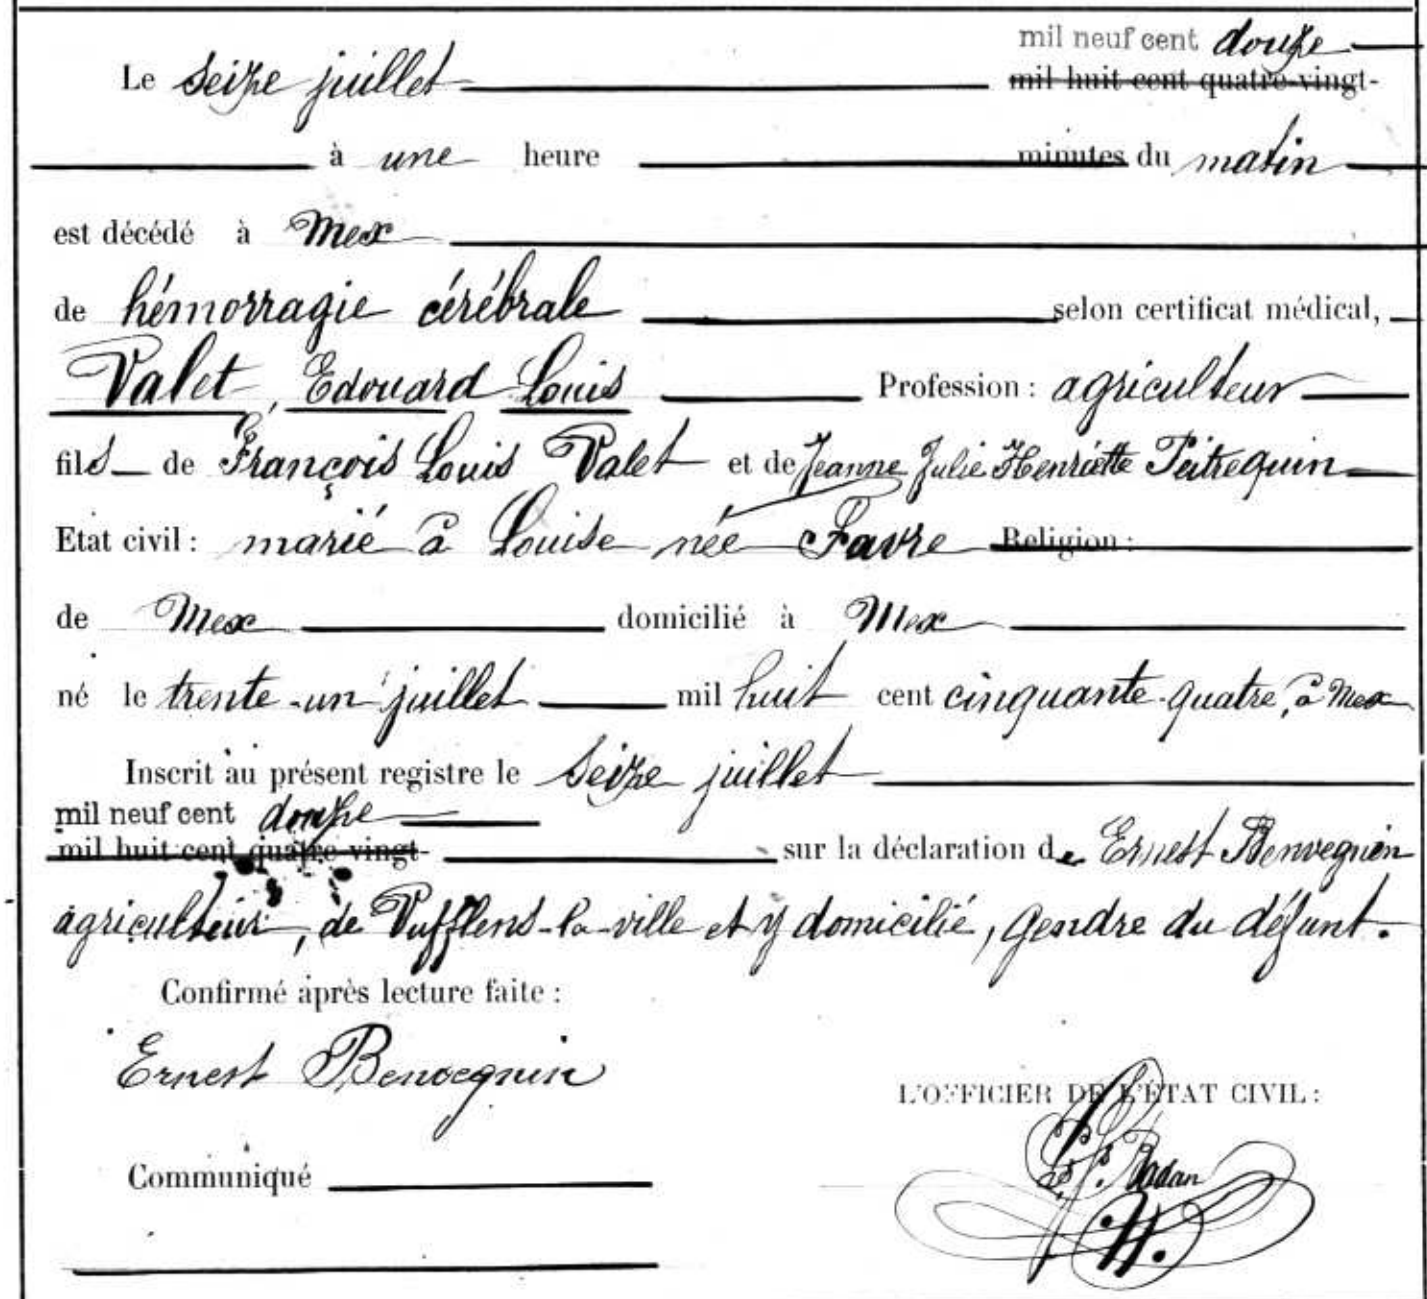 mil neuf cent douze
Le seize juillet mil huit cent quatre-vingt-
à une heure minutes du matin
est décédé à Mex
de hémorragie cérébrale selon certificat médical,
Valet, Edouard Louis Profession : agriculteur
fils de François Louis Valet et de Jeanne Julie Henriette Peitrequin
Etat civil : marié à Louise née Favre Religion :
de Mex domicilié à Mex
né le trente-un juillet mil huit cent cinquante-quatre, à Mex
Inscrit au présent registre le seize juillet
mil neuf cent douze
mil huit cent quatre-vingt- sur la déclaration de Ernest Benvegnin
agriculteur, de Vufflens-la-ville et y domicilié, gendre du défunt.
Confirmé après lecture faite :
Ernest Benvegnin
L'OFFICIER DE L'ÉTAT CIVIL :
Communiqué